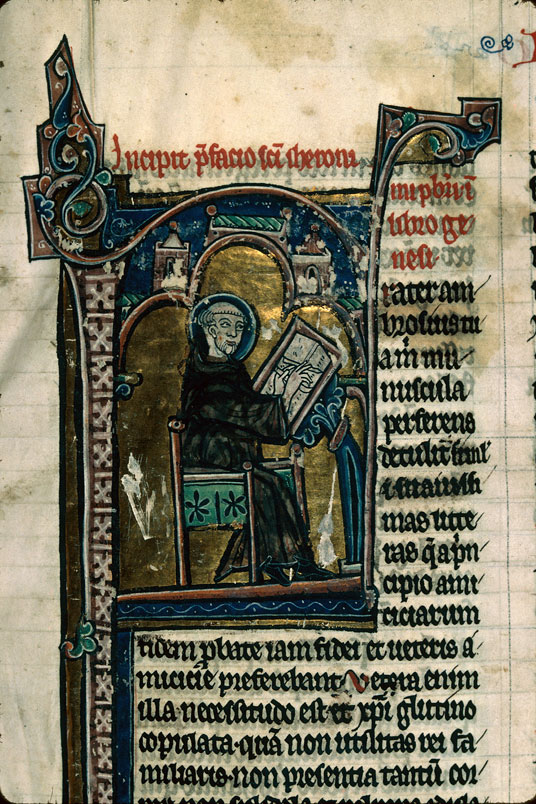 Incipit p̄facio sc̄i iheroni
mi pb̄ri ī
libro ge
nesi
rater am
brosius tu
a m̄ mu
nuscula
perferens
detulit simul
mas litte
ras q̄ a p̄n
cipio ami
ciciarum
fidem p̄bate iam fidei et ueteris a
micicie preferebant. Vetera enim
illa necessitudo est et xp̄i glutino
copulata. quā non utilitas rei fa
miliaris. non presentia tantū cor